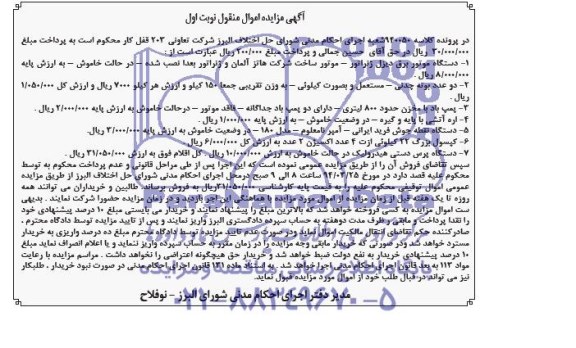 آگهی مزایده اموال منقول نوبت اول
در پرونده کلاسه ۹۲۰۰۵۰شعبه اجرای احکام مدنی شورای حل اختلاف البرز شرکت تعاونی ۲۰۳ قفل کار محکوم است به پرداخت مبلغ
۳۰/۰۰۰/۰۰۰ ریال در حق آقای حسین جمالی و پرداخت مبلغ ۲۰۰/۰۰۰ ریال عبارت است از :
۱- دستگاه موتور برق دیزل ژنراتور – موتور ساخت شرکت هاتز آلمان و ژنراتور بعدا نصب شده – در حالت خاموش – به ارزش پایه
۸/۰۰۰/۰۰۰ ریال .
۲- دو عدد بوته چدنی – مستعمل و بصورت کیلوئی – به وزن تقریبی جمعا ۱۵۰ کیلو و ارزش هر کیلو ۷۰۰۰ ریال و ارزش کل ۱/۰۵۰/۰۰۰
ریال .
۳- پمپ باد با مخزن حدود ۸۰۰ لیتری – دارای دو پمپ باد جداگانه – فاقد موتور – درحالت خاموش به ارزش پایه ۲/۰۰۰/۰۰۰ ریال .
۴- اره آتشی با پایه و گیره – در وضعیت خاموش – به ارزش پایه ۱/۰۰۰/۰۰۰ ریال.
۵- دستگاه نقطه جوش فرید ایرانی – آمپر نامعلوم – مدل ۱۸۰ – در وضعیت خاموش به ارزش پایه ۳/۰۰۰/۰۰۰ ریال.
۶- کپسول بزرگ ۲۲ کیلوئی ازت ۴ عدد اکسیژن ۲ عدد به ارزش کل ۶/۰۰۰/۰۰۰ ریال
۷ – دستگاه پرس دستی هیدرولیک در حالت خاموش به ارزش ۱۰/۰۰۰/۰۰۰ ریال : کل اقلام فوق به ارزش ۳۱/۰۵۰/۰۰۰ ریال .
سپس تقاضای فروش آن را از طریق مزایده عمومی نموده است که این اجرا پس از طی مراحل قانونی و عدم پرداخت محکوم به توسط
محکوم علیه قصد دارد در مورخ ۹۴/۰۳/۲۵ ساعت ۸ الی ۹ صبح درمحل اجرای احکام مدنی شورای حل اختلاف البرز از طریق مزایده
عمومی اموال توقیفی محکوم علیه را به قیمت پایه کارشناسی ۳۱/۰۵۰/۰۰۰ریال به فروش برساند. طالبین و خریداران می توانند همه
روزه تا یک هفته قبل از زمان مزایده از اموال مورد مزایده با هماهنگی این اجرا بازدید و در زمان مزایده حضورا شرکت نمایند. بدیهی
ست اموال مزایده به کسی فروخته خواهد شد که بالاترین مبلغ را پیشنهاد نماید و خریدار می بایستی مبلغ ۱۰ درصد پیشنهادی خود
را نقدا پرداخت و مابقی را ظرف مدت دوهفته به حساب سپرده دادگستری البرز واریز نمایند و پس از تایید مزایده توسط دادگاه محترم .
صادرکننده حکم تقاضای انتقال مالکیت اموال نماید ودر صورت عدم تایید مزایده توسط دادگاه محترم مبلغ ده درصد واریزی به خریدار
مسترد خواهد شد ودر صورتی که خریدار مابقی وجه مزایده را در زمان مقرر به حساب سپرده واریز ننماید و یا اعلام انصراف نماید مبلغ
۱۰ درصد پیشنهادی خریدار به نفع دولت ضبط خواهد شد و خریدار حق هیچگونه اعتراضی را نخواهد داشت . مراسم مزایده با رعایت
مواد ۱۱۳ به بعد قانون اجرای احکام مدنی اجرا خواهد شد . به استناد ماده ۱۳۱ قانون اجرای احکام مدنی در صورت نبود خریدار ، طلبکار
نیز می تواند در قبال طلب خود از اموال مورد مزایده قبول نماید.
مدیر دفتر اجرای احکام مدنی شورای البرز – نوفلاح
۰۲۱-۸۸۳۴۹۶۷۰-۵